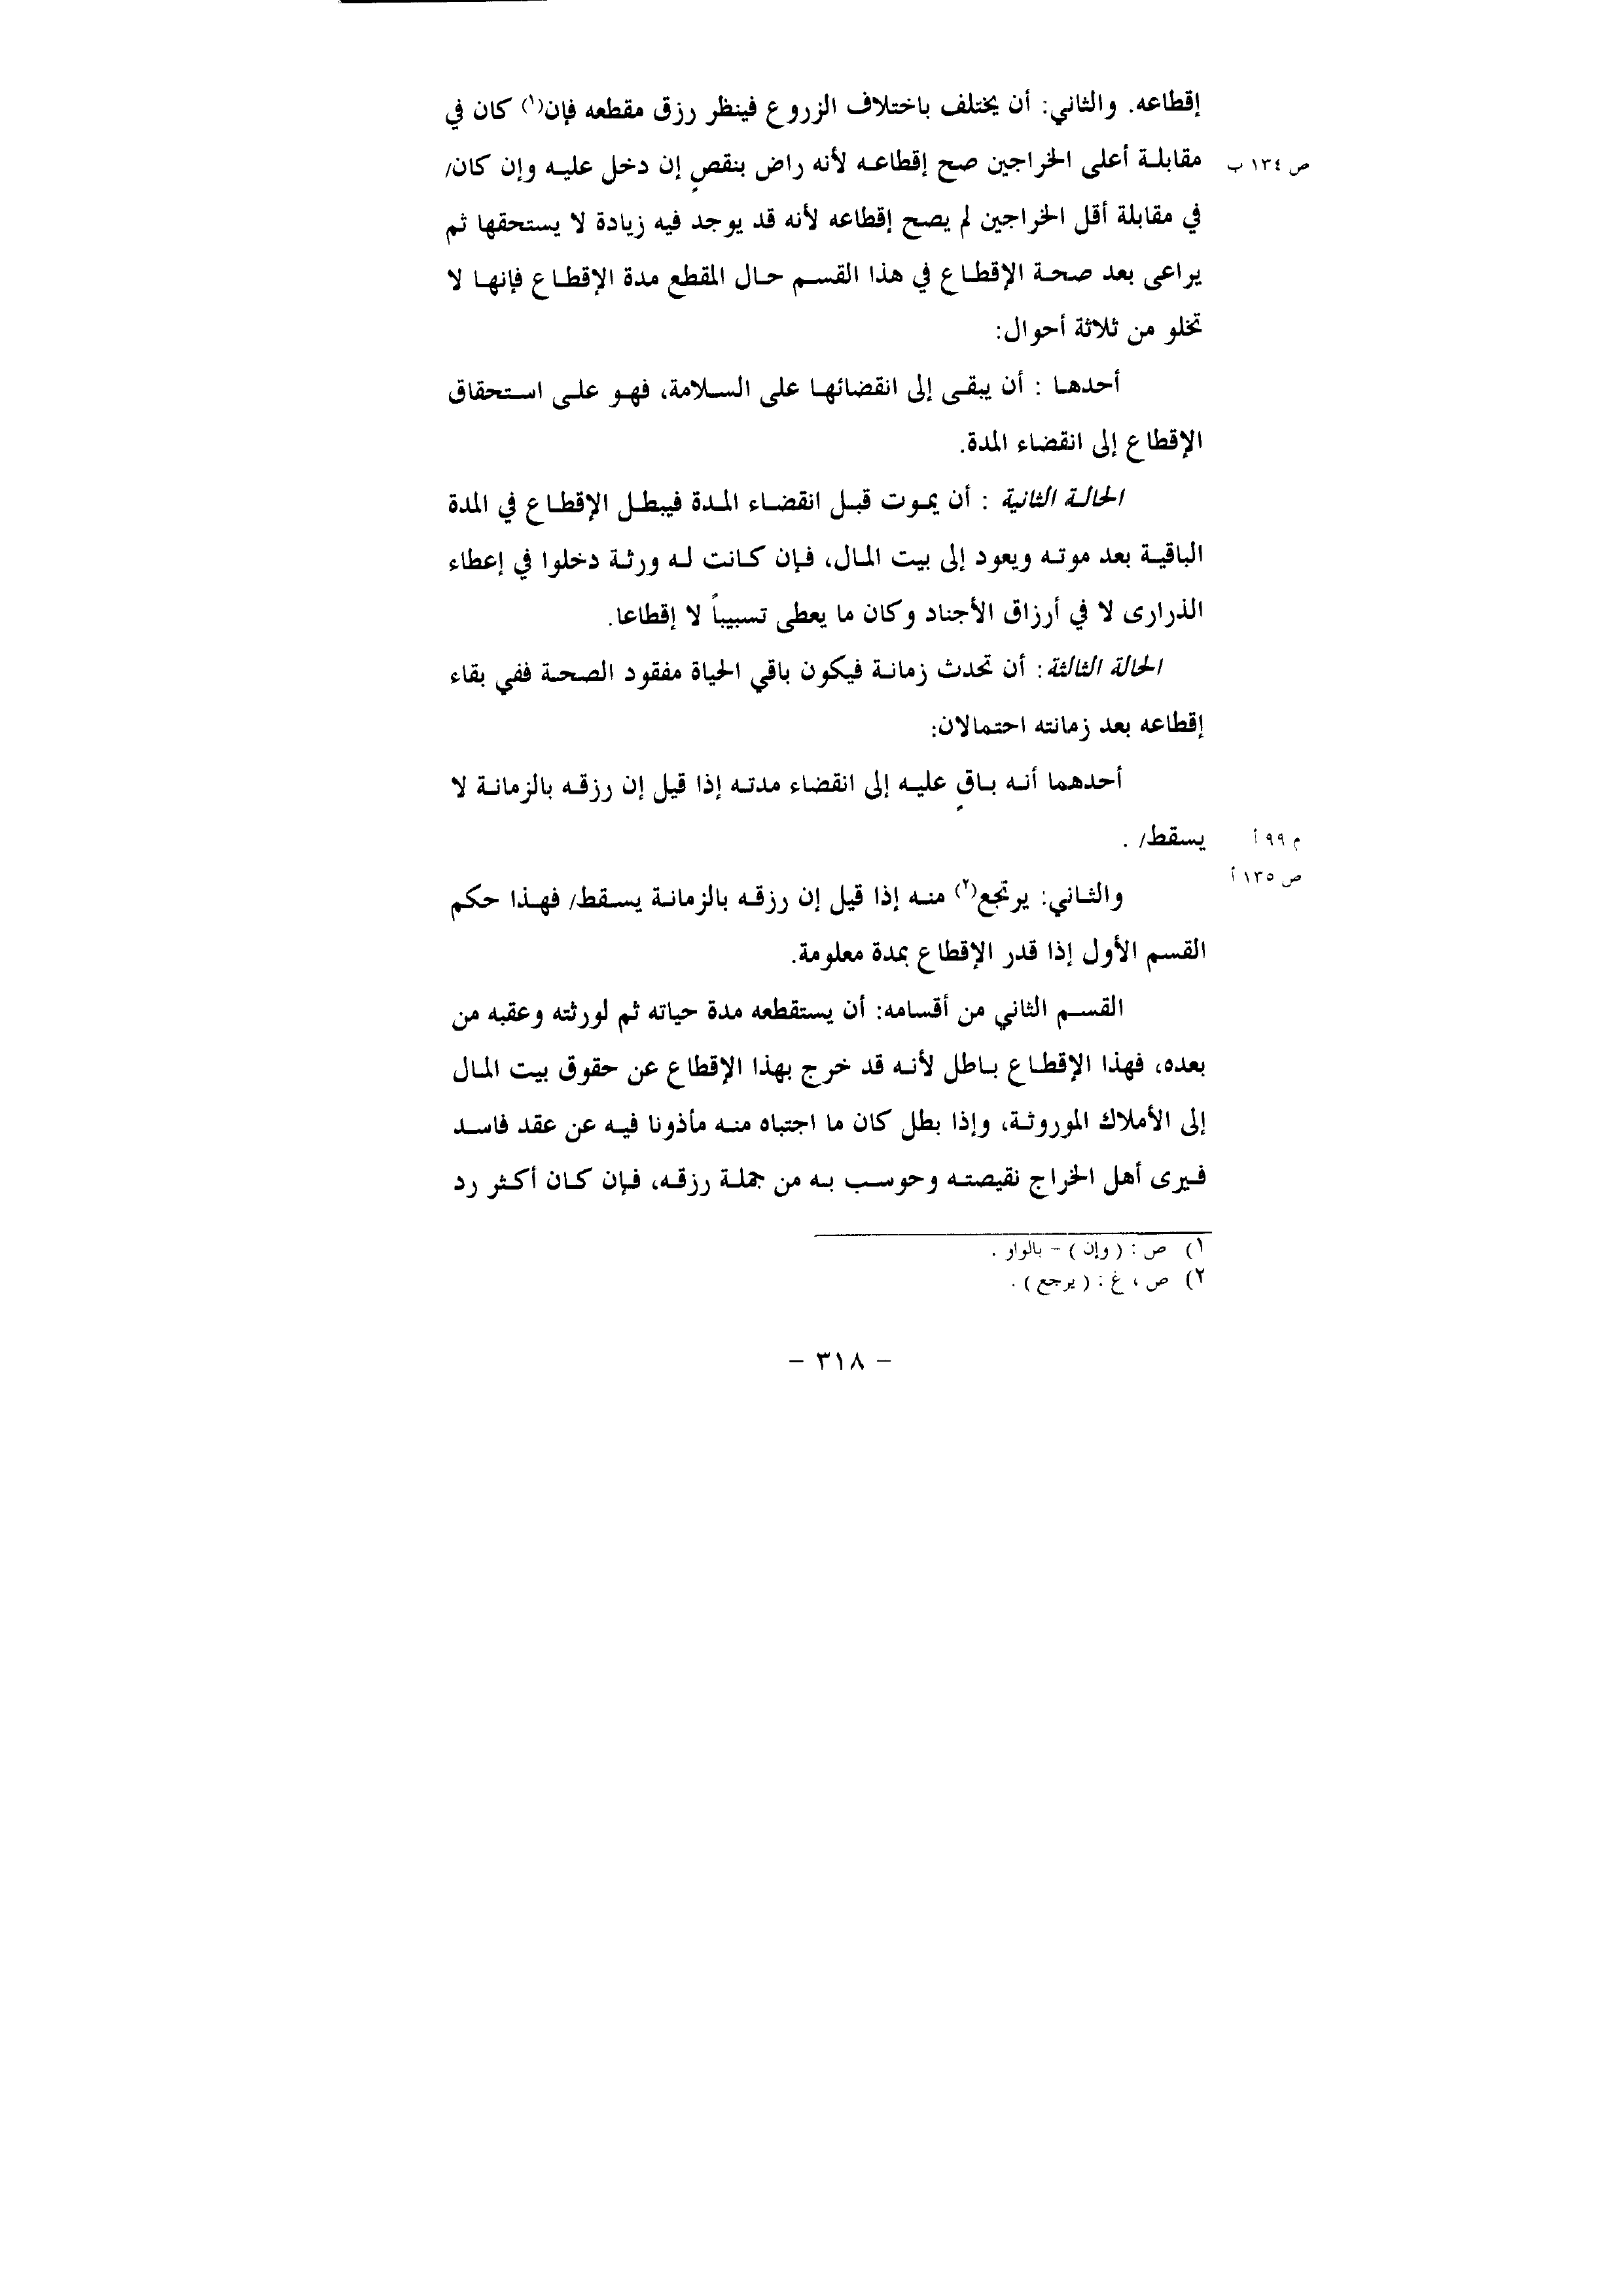 إقطاعه. والثاني: أن يختلف باختلاف الزروع فينظر رزق مقطعه فإن(١) كان في
مقابلة أعلى الخراجين صح إقطاعه لأنه راض بنقصٍ إن دخل عليه وإن كان/
ص ١٣٤ ب
في مقابلة أقل الخراجين لم يصح إقطاعه لأنه قد يوجد فيه زيادة لا يستحقها ثم
يراعى بعد صحة الإقطاع في هذا القسم حال المقطع مدة الإقطاع فإنها لا
تخلو من ثلاثة أحوال:
أحدها : أن يبقى إلى انقضائها على السلامة، فهو على استحقاق
الإقطاع إلى انقضاء المدة.
الحالة الثانية : أن يموت قبل انقضاء المدة فيبطل الإقطاع في المدة
الباقية بعد موته ويعود إلى بيت المال، فإن كانت له ورثة دخلوا في إعطاء
الذرارى لا في أرزاق الأجناد وكان ما يعطى تسبيباً لا إقطاعا.
الحالة الثالثة: أن تحدث زمانة فيكون باقي الحياة مفقود الصحة ففي بقاء
إقطاعه بعد زمانته احتمالان:
أحدهما أنه باقٍ عليه إلى انقضاء مدته إذا قيل إن رزقه بالزمانة لا
يسقط/ .
م ٩٩ أ
ص ١٣٥ أ
والثاني: يرتجع(٢) منه إذا قيل إن رزقه بالزمانة يسقط/ فهذا حكم
القسم الأول إذا قدر الإقطاع بمدة معلومة.
القسم الثاني من أقسامه: أن يستقطعه مدة حياته ثم لورثته وعقبه من
بعده، فهذا الإقطاع باطل لأنه قد خرج بهذا الإقطاع عن حقوق بيت المال
إلى الأملاك الموروثة، وإذا بطل كان ما اجتباه منه مأذونا فيه عن عقد فاسد
فيرى أهل الخراج نقيصته وحوسب به من جملة رزقه، فإن كان أكثر رد
١) ص : ( وإن ) – بالواو .
٢) ص ، غ : ( يرجع ) .
– ٣١٨ –